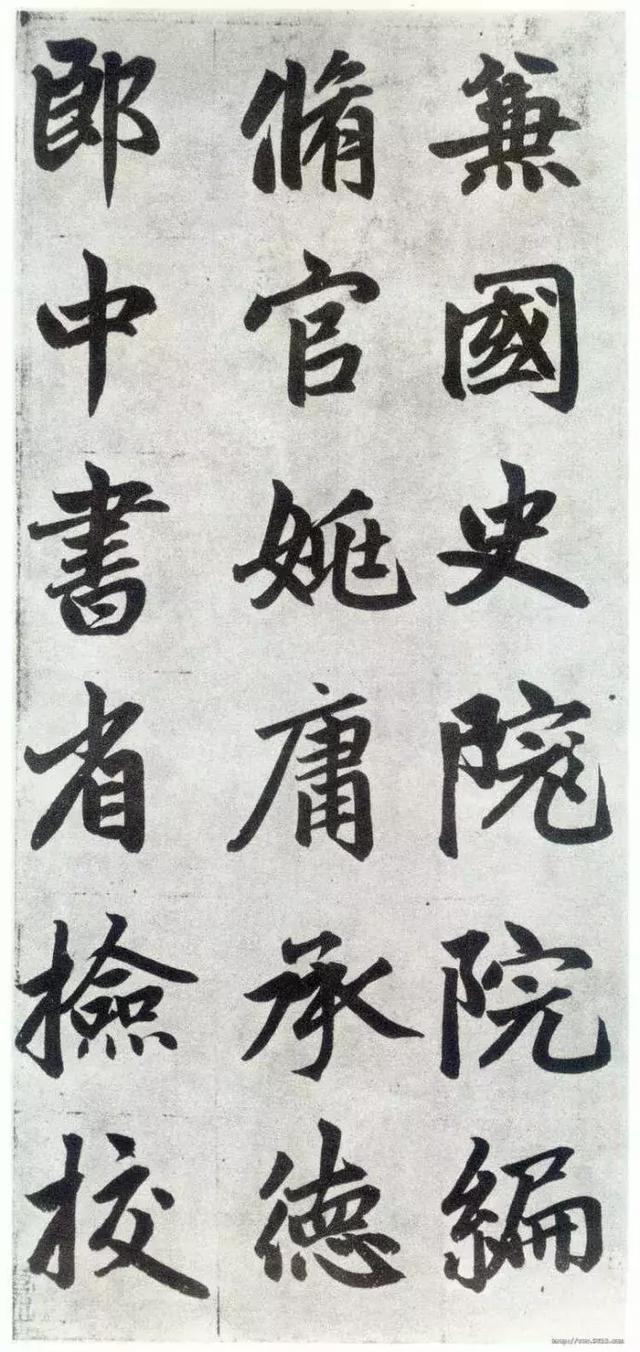 兼國史院院編
脩官姚庸承德
郎中書省撿挍